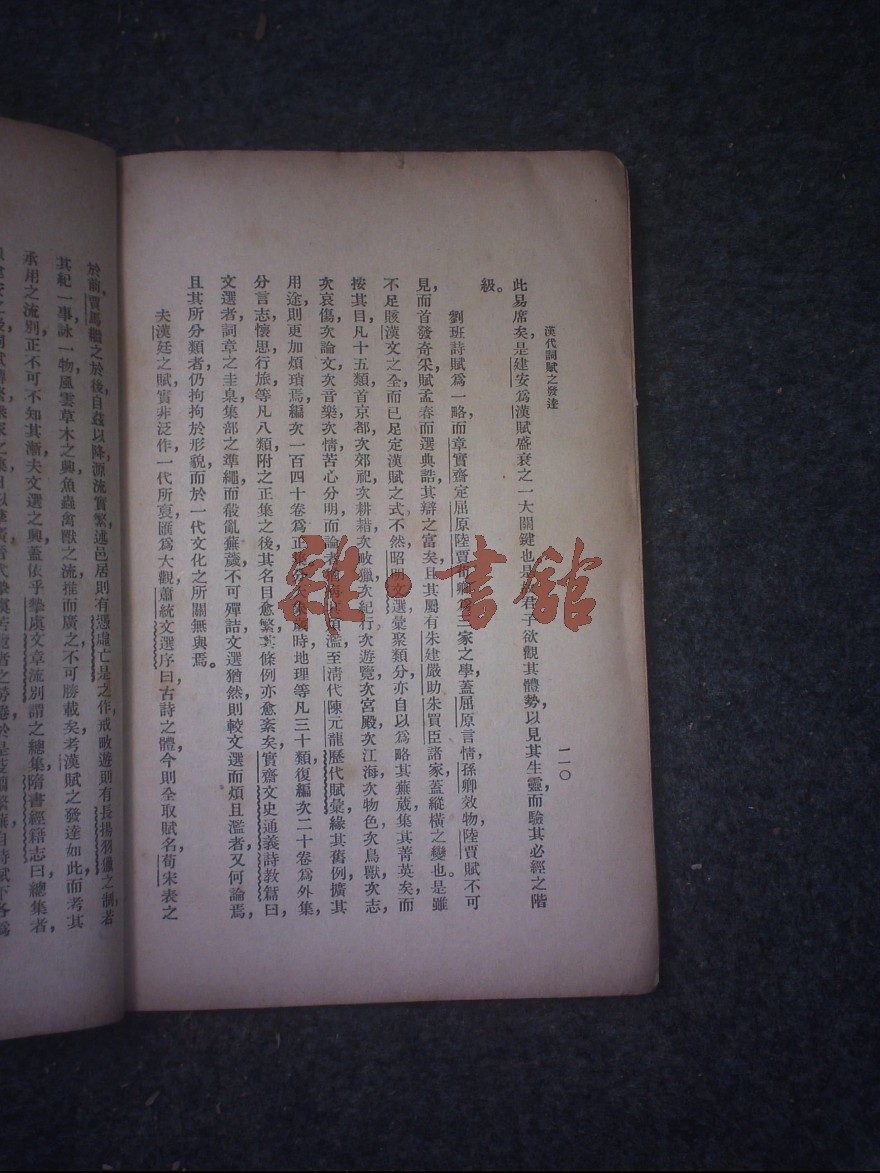 漢代詞賦之發達
二一〇
此易席矣是建安爲漢賦盛衰之一大關鍵也是故君子欲觀其體勢以見其生靈而驗其必經之階
級。
劉班詩賦爲一略而章實齋定屈原陸賈荀卿爲三家之學蓋屈原言情，孫卿效物，陸賈賦不可
見，而首發奇采賦孟春而選典誥其辯之富矣且其屬有朱建嚴助朱買臣諸家蓋縱橫之變也。是雖
不足賅漢文之全而已足定漢賦之式不然昭明文選彙聚類分，亦自以爲略其蕪葳集其菁英矣而
按其目，凡十五類首京都，次郊祀，次耕耤，次畋獵，次紀行，次遊覽，次宮殿，次江海，次物色，次鳥獸，次志，
次哀傷，次論文，次音樂，次情苦心分明而論者濫至清代陳元龍歷代賦彙緣其舊例擴其
用途則更加煩瑣焉。編次一百四十卷爲正集，歲時地理等凡三十類，復編次二十卷爲外集，
分言志懷思行旅等凡八類附之正集之後其名目愈繁其條例亦愈紊矣實齋文史通義詩教篇曰
文選者，詞章之圭臬集部之準繩而殽亂蕪穢不可殫詰文選猶然則較文選而煩且濫者又何論焉，
且其所分類者仍拘拘於形貌而於一代文化之所關無與焉。
夫漢廷之賦實非泛作一代所裒匯爲大觀蕭統文選序曰古詩之體，今則全取賦名荀宋表之
於前，賈馬繼之於後自茲以降源流實繁述邑居則有憑虛亡是之作戒畋遊則有長揚羽獵之制若
其紀一事詠一物風雲草木之興魚蟲禽獸之流推而廣之不可勝載矣考漢賦之發達如此而考其
承用之流別正不可不知其漸夫文選之興蓋依乎摯虞文章流別謂之總集隋書經籍志曰總集者，
雜·書館